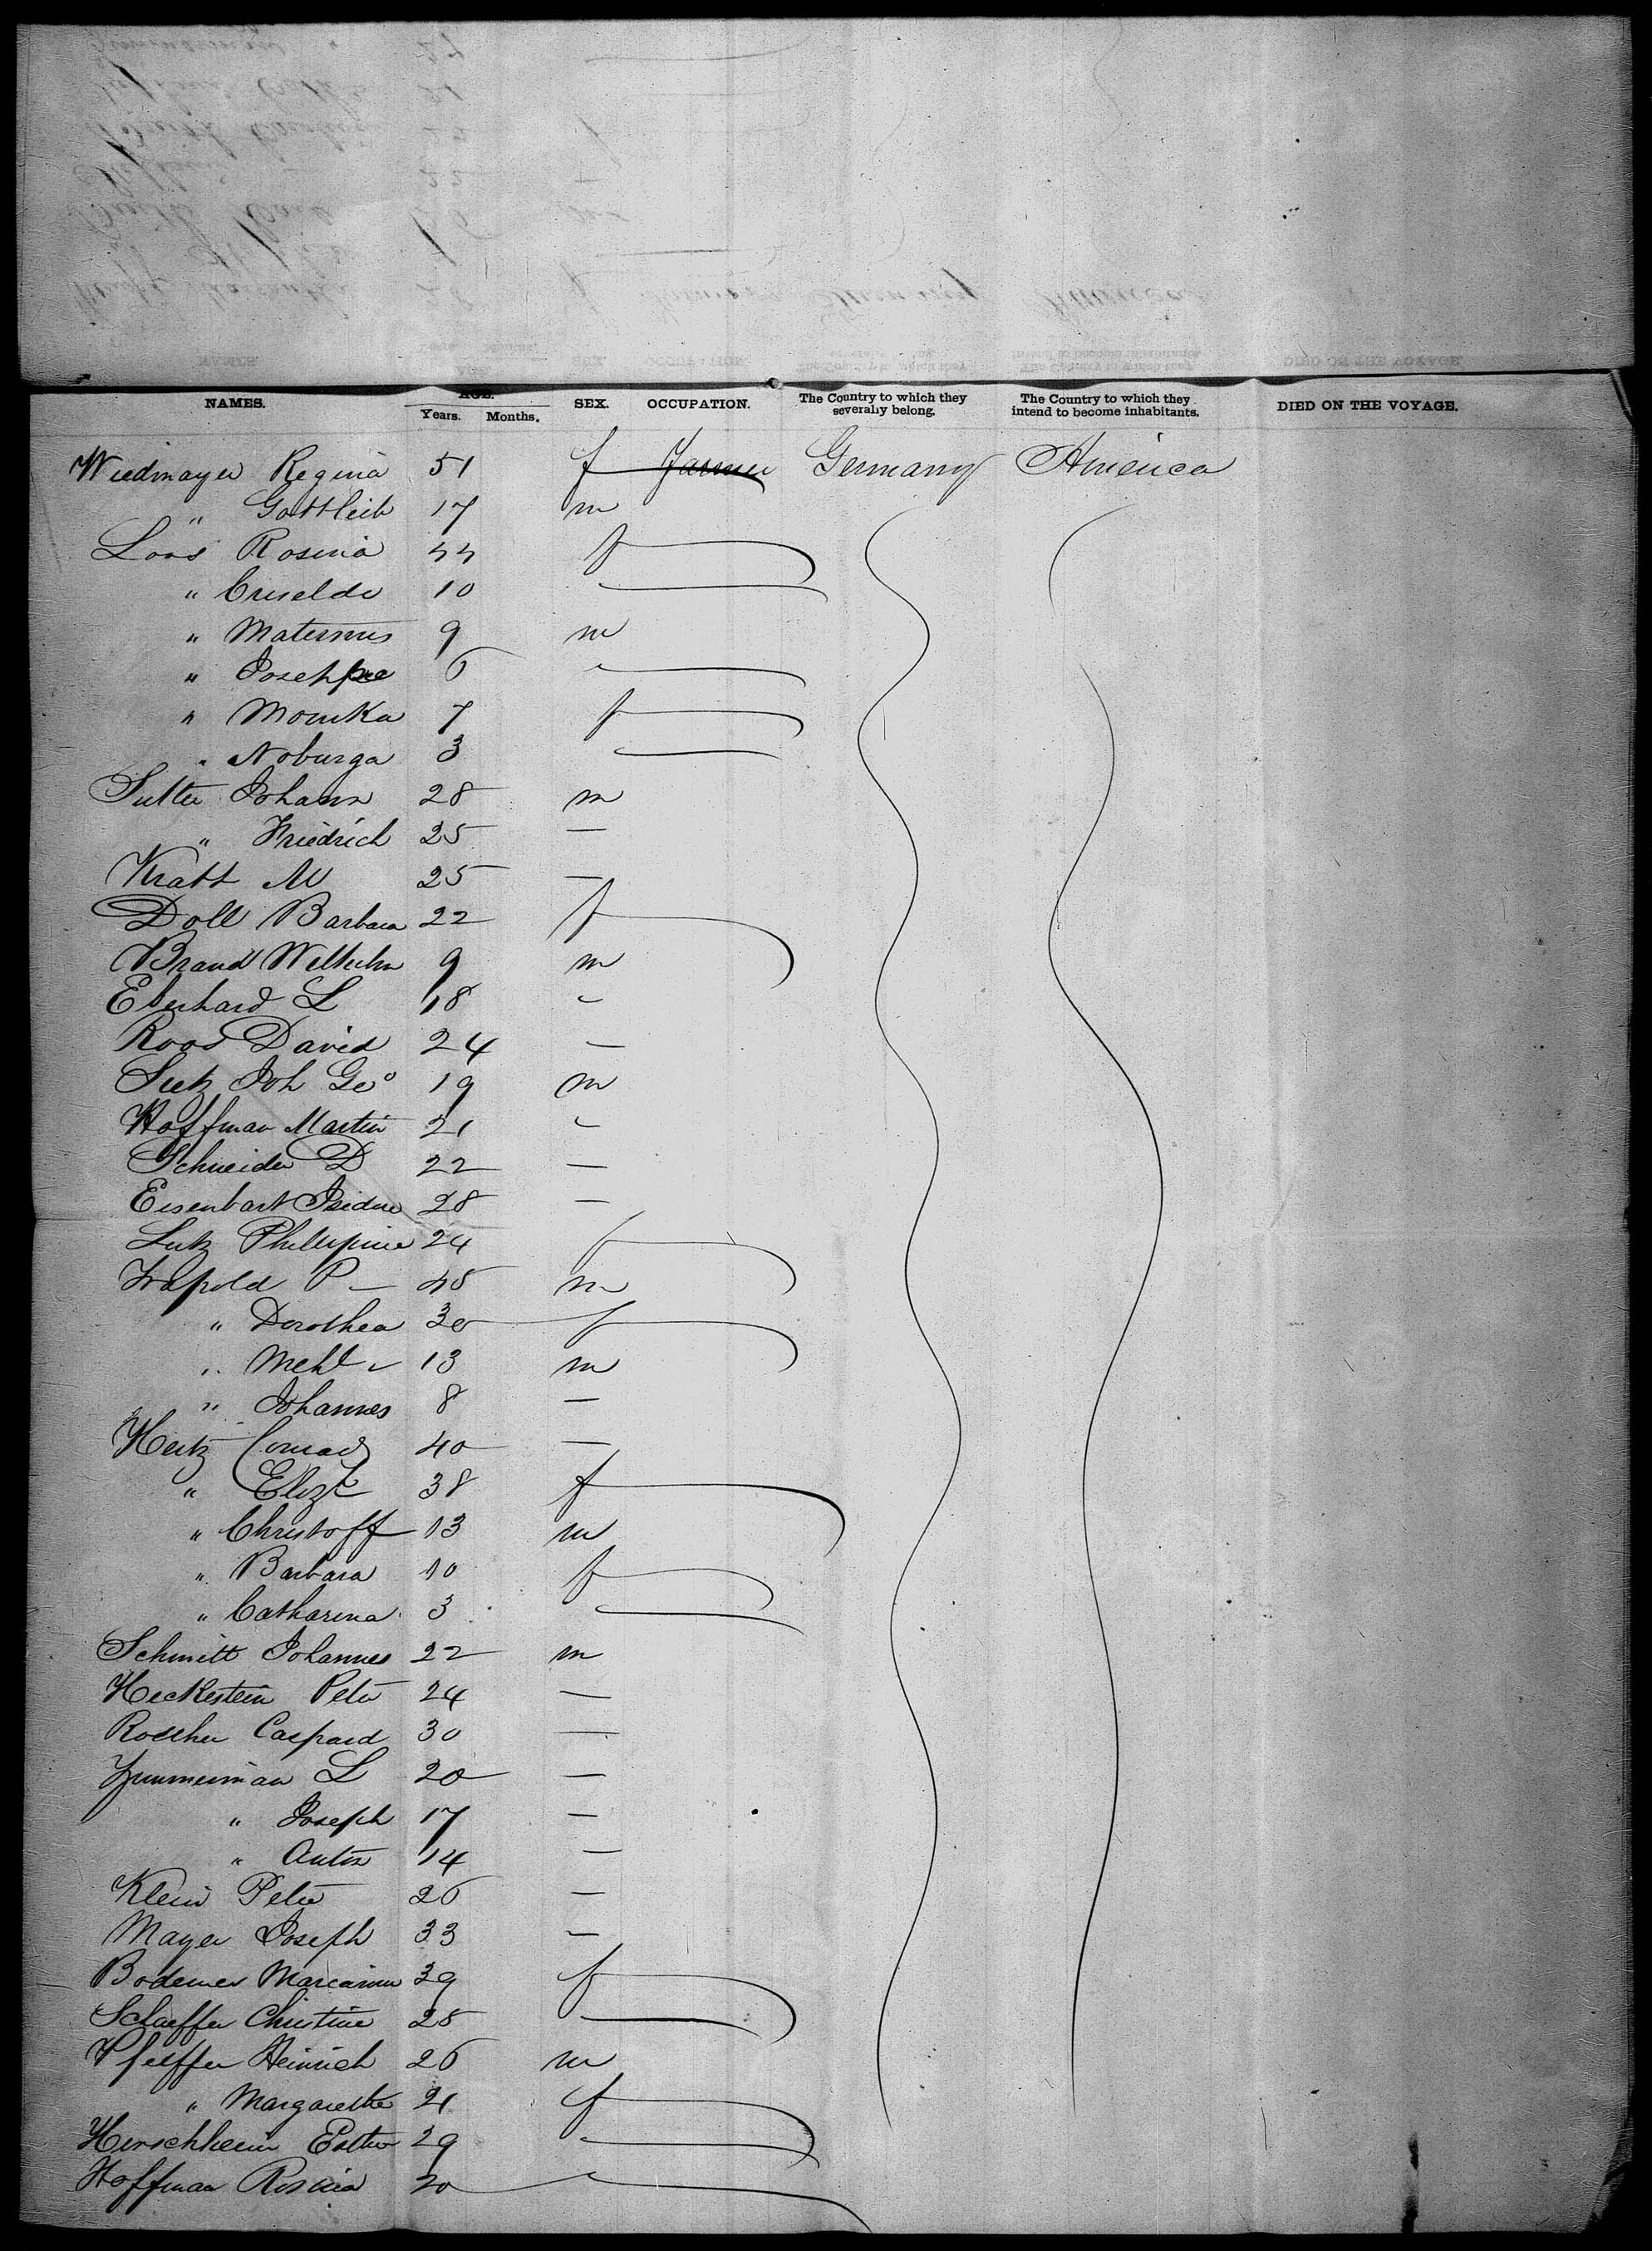 NAMES.
AGE.
Years. Months.
SEX.
OCCUPATION.
The Country to which they severally belong.
The Country to which they intend to become inhabitants.
DIED ON THE VOYAGE.
Wiedmayer Regina 51 f Farmer Germany America
" Gottlieb 17 m
Loos Rosina 44 f
" Criselda 10
" Maternus 9 m
" 6
" Monika 7 f
" Noburga 3
Sutter Johann 28 m
" Friedrich 25 —
Kratt M 25 —
Doll Barbara 22 f
Brand Wilhelm 9 m
Eberhard L 18 -
Roos David 24 —
Joh Geo 19 m
Hoffman Martin 21 -
Schneider D 22 —
Eisenbart Isidore 28 —
Lutz Phillipine 24 f
P — 45 m
" Dorothea 30 f
" 13 m
" Johannes 8 —
Conrad 40 —
" Elizt 38 f
" Christoff 13 m
" Barbara 10 f
" Catharina 3
Schmitt Johannes 22 m
Heckestein Peter 24 —
Caspard 30 —
Zimmerman L 20 —
" Joseph 17 —
" Anton 14 —
Klein Peter 26 —
Mayer Joseph 33 -
Bodemer 39 f
Schaeffer Christine 28
Pfeiffer Heinrich 26 m
" Margarethe 21 f
Hirschheim Esther 29
Hoffman Rosina 20